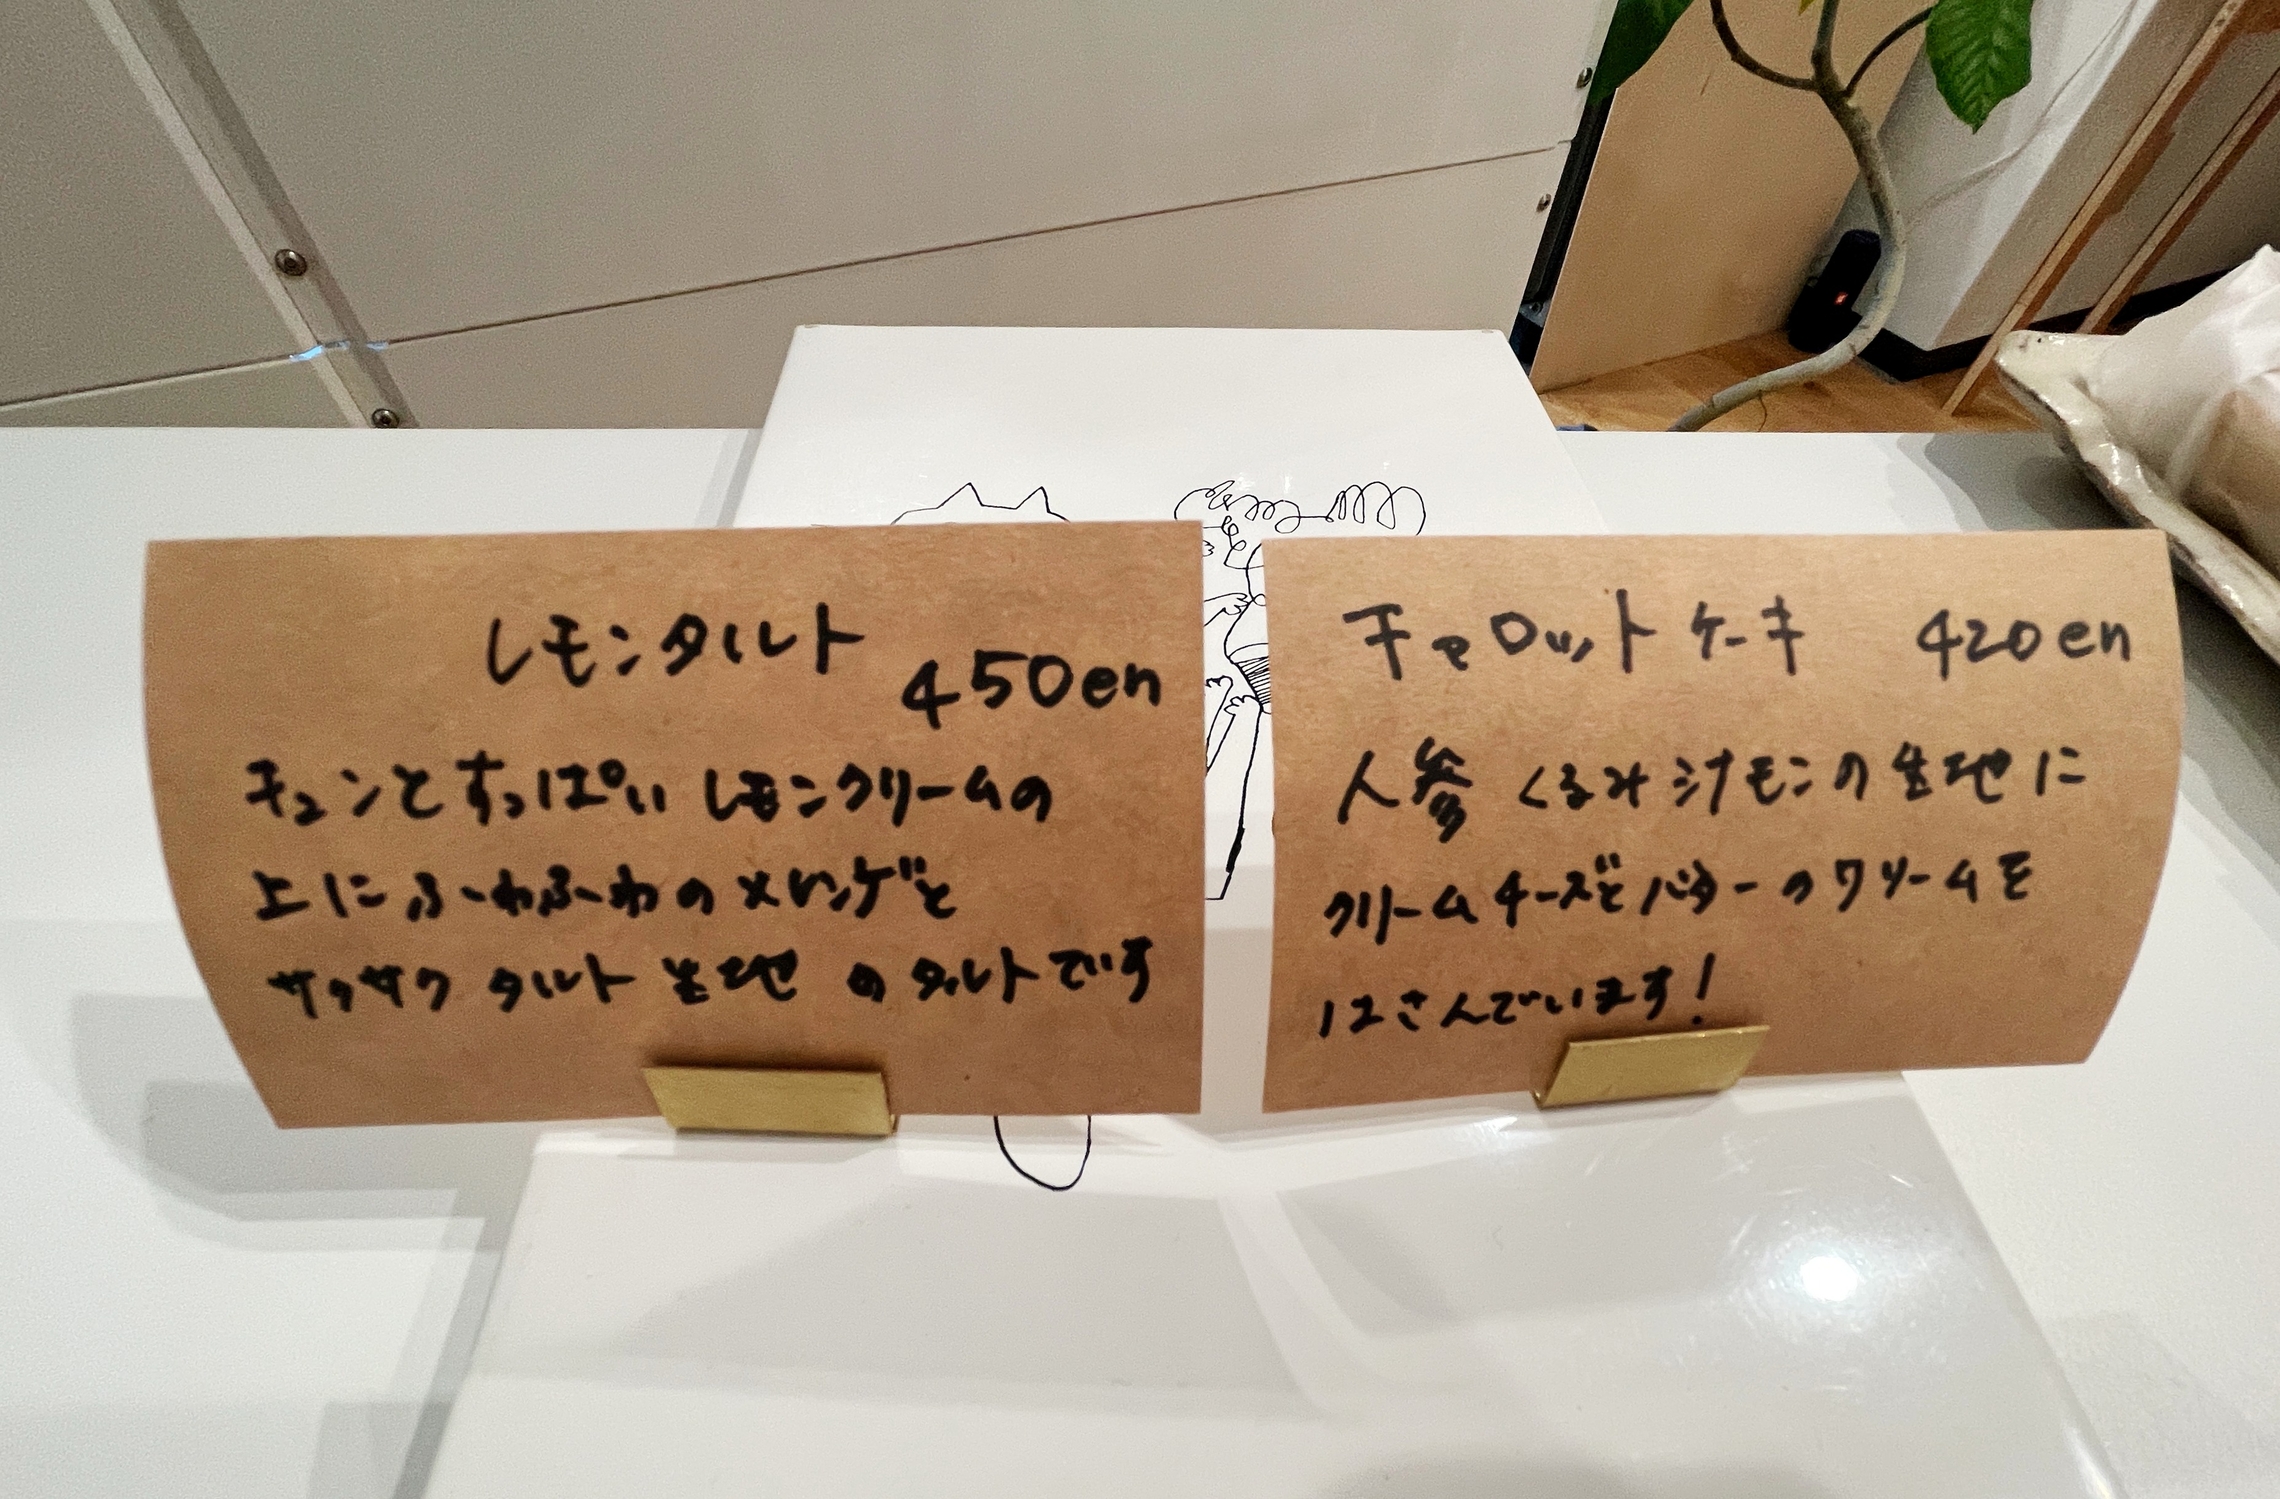 レモンタルト
450en
チュンとすっぱいレモンクリームの
上にふーわふーわのメレンゲと
サクサクタルト生地のタルトです
キャロットケーキ 420en
人参 くるみ シナモンの生地に
クリームチーズとバターのクリームを
はさんでいます！